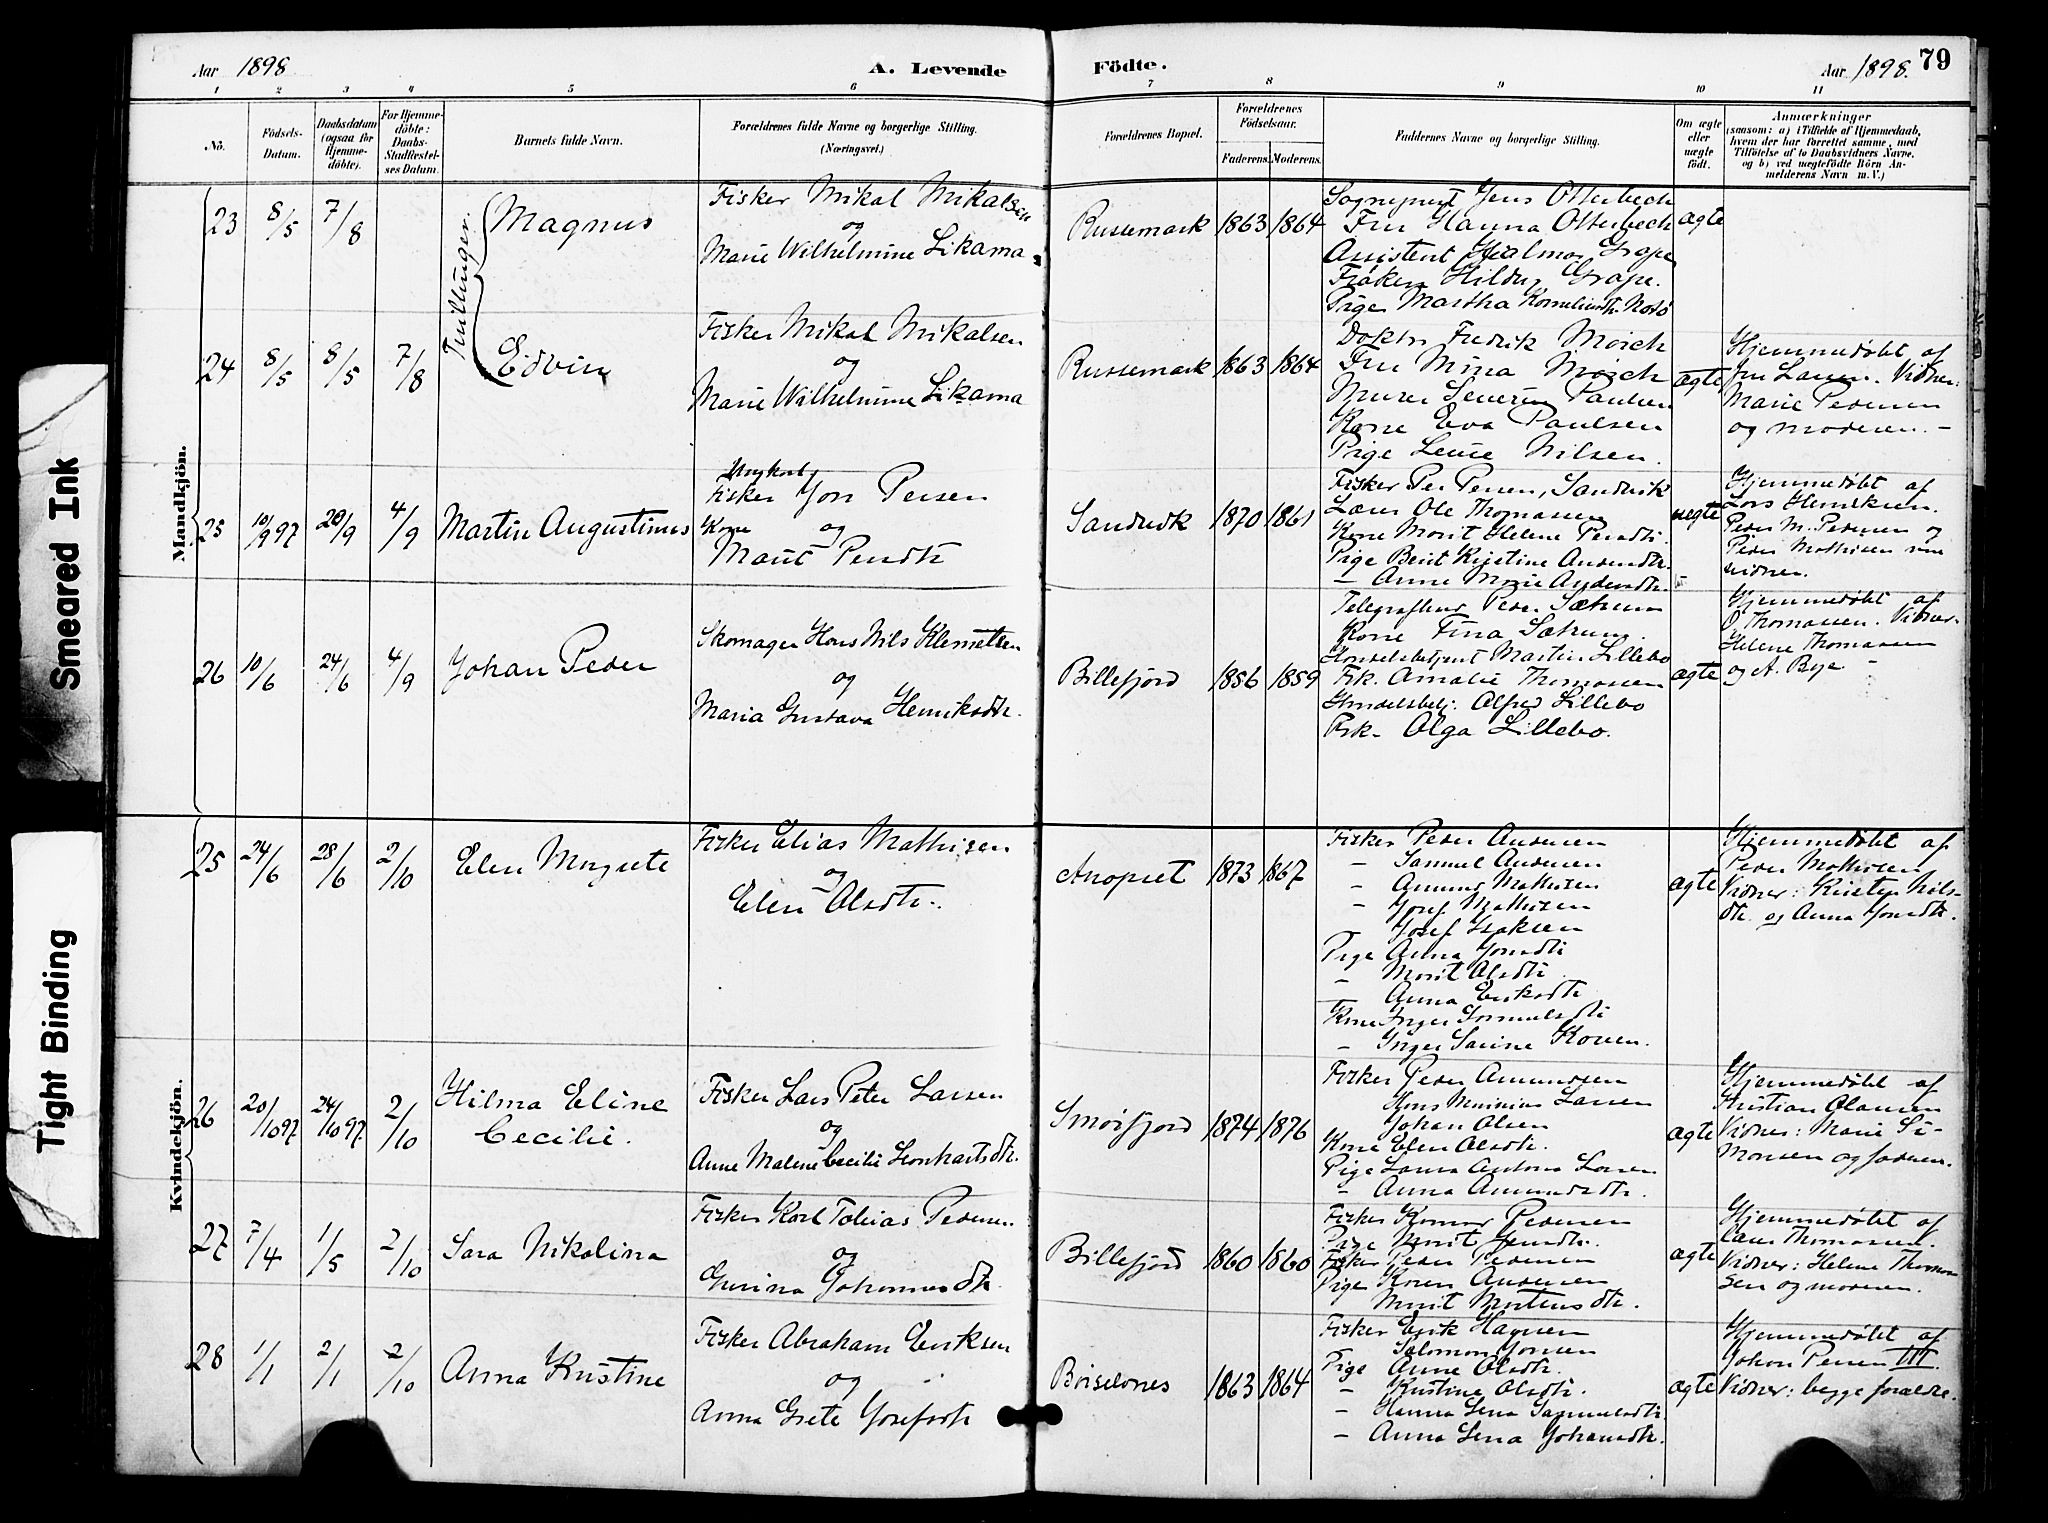 Aar 1898
A. Levende
Födte.
Aar 1898.
79
1 2 3 4 5 6 7 8 9 10 11
Nö.
Födsels-
Datum.
Daabsdatum
(ogsaa for
Hjemme-
döbte).
For Hjemme-
döbte:
Daabs-
Stadfæstel-
ses Datum.
Barnets fulde Navn.
Forældrenes fulde Navne og borgerlige Stilling.
(Næringsvei.)
Forældrenes Bopæl.
Forældrenes
Födselsaar.
Faderens.
Moderens.
Faddernes Navne og borgerlige Stilling.
Om ægte
eller
uægte
födt.
Anmærkninger
(saasom: a) i Tilfælde af Hjemmedaab,
hvem der har forrettet samme, med
Tilföielse af to Daabsvidners Navne,
og b) ved uægtefödte Börn An-
melderens Navn m. V.)
Smeared Ink
Tight Binding
Mandkjön.
23
8/5
7/8
Tvillinger
Magnus
Fisker Mikal Mikalsen
og
Marie Wilhelmine Likama
Russemark
1863
1864
Sogneprest Jens Otterbech
Fru Hanna Otterbech
Assistent Hjalmar Grape
Frøken Hildur Grape.
Pige Martha
ægte
24
8/5
8/5
7/8
Edvin
Fisker Mikal Mikalsen
og
Marie Wilhelmine Likama
Russemark
1863
1864
Doktor Fredrik Moich
Fru Mina Moich
Murer Severin Paulsen
Kone Eva Paulsen
Pige Nilsen.
ægte
Hjemmedøbt af
Fru Larsen. Vidner:
Marie Pedersen
og moderen. -
25
10/9 97
20/9
4/9
Martin Augustinus
Ungkarl
Fisker Jon Persen
Kone og
Marit Persdtr
Sandvik
1870
1861
Fisker Per Persen, Sandvik
Lærer Ole Thomassen
Kone Marit Helene Persdtr.
Pige Berit Kirstine Andersdtr.
- Anne Marie Andersdtr.
uegte
Hjemmedøbt af
Lars Henriksen.
Peder M. Pedersen og
Peder Mathisen som
vidner.
26
10/6
24/6
4/9
Johan Peder
Skomager Hans Nils Klemetsen
og
Maria Gustava Henriksdtr.
Billefjord
1856
1859
Peder Sætrum
Kone Fina Sætrum.
Handelsbetjent Martin Lillebo
Frk. Amalie Thomassen
Handelsbetj. Alfred Lillebo
Frk. Olga Lillebo.
ægte
Hjemmedøbt af
O. Thomassen. Vidner:
Helene Thomassen
og A. Bye -
Kvindekjön.
25
24/6
28/6
2/10
Elen Margrete
Fisker Elias Mathisen
og
Elen Olsdtr.
1873
1867
Fisker Peder Andersen
- Samuel Andersen
- Amund Mathisen
- Josef Mathisen
Josef Isaksen
Pige Anna Jonsdtr
- Marit Olsdtr
- Anna Eriksdtr
Kone Inger Samuelsdtr
- Inger Sarine
ægte
Hjemmedøbt af
Peder Mathisen
Vidner: Kirsten Nils-
dtr. og Anna Jonsdtr.
26
20/10 97
24/10 97.
2/10
Hilma Eline
Cecilie.
Fisker Lars Peter Larsen
og
Anne Malene Cecilie Leonhartsdtr.
Smørfjord
1874
1876
Fisker Peder Amundsen
Hans Larsen
Johan Olsen
Kone Elen Olsdtr.
Pige Laura Antona Larsen
- Anna Amundsdtr.
ægte
Hjemmedøbt af
Kristian Olausen
Vidner: Marie Si-
monsen og faderen.
27
7/4
1/5
2/10
Sara Nikolina
Fisker Karl Tobias Pedersen
og
Gurina Johannesdtr.
Billefjord
1860
1860
Fisker Pedersen
Pige Marit Jonsdtr.
Fisker Peder Pedersen
Pige Karen Andersen
Marit Mortensdtr.
ægte
Hjemmedøbt af
Lærer Thomassen.
Vidner: Helene Thomas-
sen og moderen.
28
1/1
2/1
2/10
Anna Kristine
Fisker Abraham Eriksen
og
Anna Grete Josefsdtr
Børselvnes
1863
1864
Fisker Erik
Salomon Jonsen
Pige Anne Olsdtr.
- Kristine Olsdtr.
- Hanna Lena Samuelsdtr.
- Anna Lena Johansdtr.
ægte
Hjemmedøbt af
Johan Persen III.
Vidner: begge forældre.